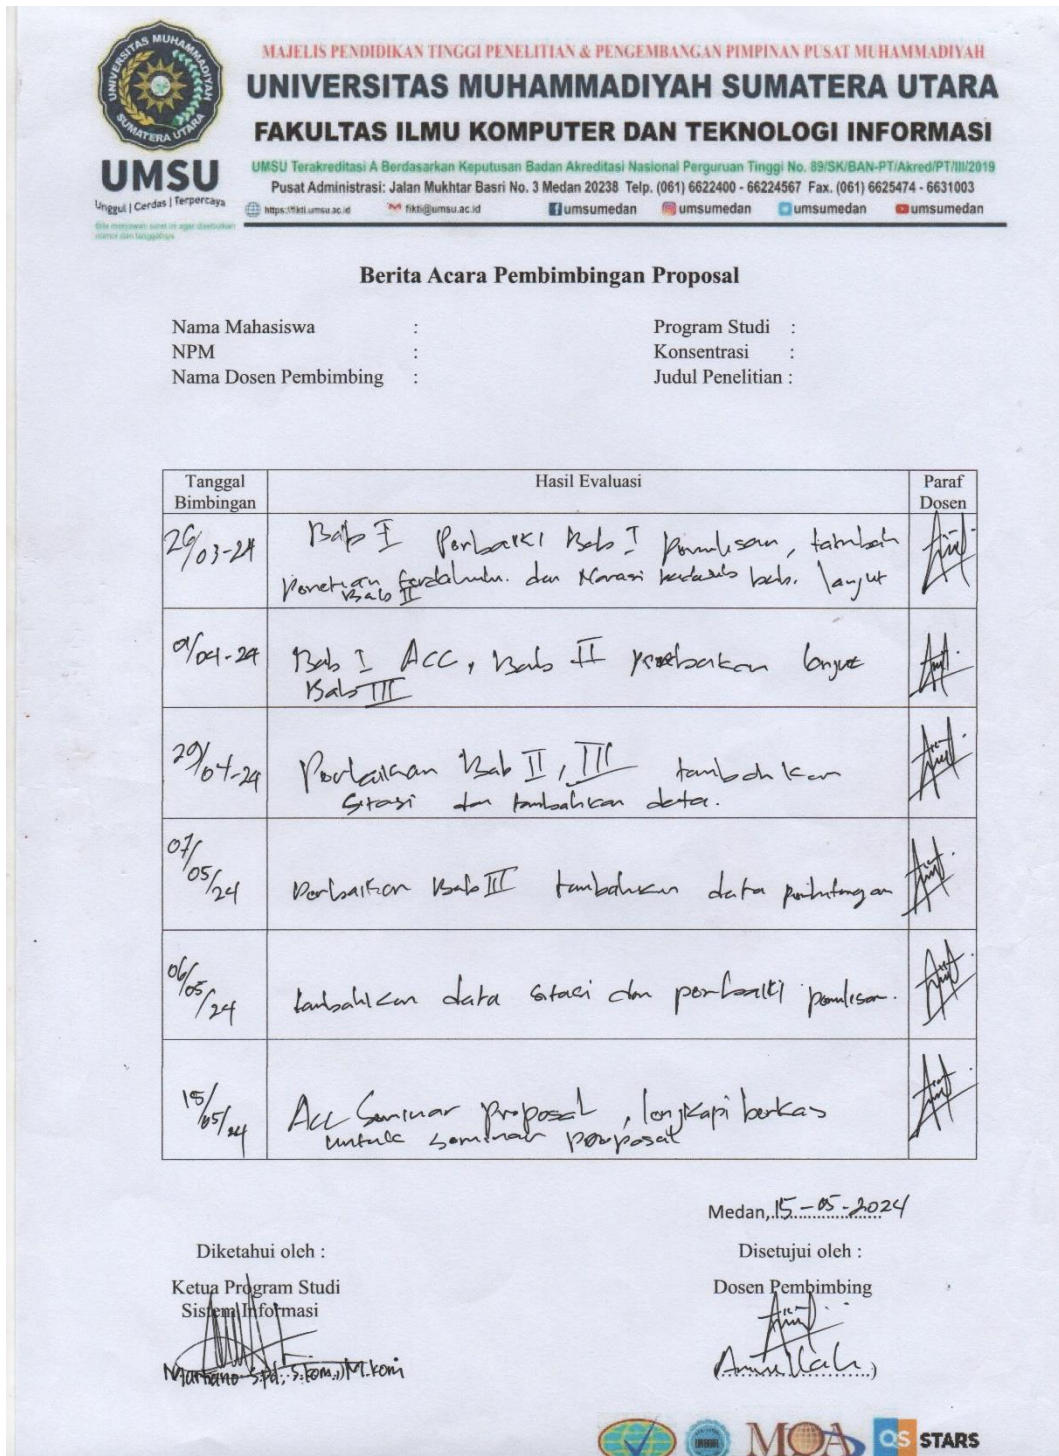 UNIVERSITAS MUHAMMADIYAH
SUMATERA UTARA
UMSU
Unggul | Cerdas | Terpercaya
Bila menjawab surat ini agar disebutkan
nomor dan tanggalnya
MAJELIS PENDIDIKAN TINGGI PENELITIAN & PENGEMBANGAN PIMPINAN PUSAT MUHAMMADIYAH
UNIVERSITAS MUHAMMADIYAH SUMATERA UTARA
FAKULTAS ILMU KOMPUTER DAN TEKNOLOGI INFORMASI
UMSU Terakreditasi A Berdasarkan Keputusan Badan Akreditasi Nasional Perguruan Tinggi No. 89/SK/BAN-PT/Akred/PT/III/2019
Pusat Administrasi: Jalan Mukhtar Basri No. 3 Medan 20238 Telp. (061) 6622400 - 66224567 Fax. (061) 6625474 - 6631003
https://fikti.umsu.ac.id fikti@umsu.ac.id umsumedan umsumedan umsumedan umsumedan
Berita Acara Pembimbingan Proposal
Nama Mahasiswa : Program Studi :
NPM : Konsentrasi :
Nama Dosen Pembimbing : Judul Penelitian :
Tanggal Bimbingan Hasil Evaluasi Paraf Dosen
26/03-24 Bab I Perbaiki Bab I penulisan, tambah
terdahulu. dan Narasi bab. lanjut
Bab II
01/04-24 Bab I ACC, Bab II perbaikan lanjut
Bab III
29/04-24 Perbaikan Bab II, III tambahkan
sitasi dan tambahkan data.
07/05/24 Perbaikan Bab III tambahkan data perhitungan
06/05/24 tambahkan data sitasi dan perbaiki penulisan.
15/05/24 Acc Seminar proposal, lengkapi berkas
untuk seminar proposal
Medan, 15-05-2024
Diketahui oleh : Disetujui oleh :
Ketua Program Studi Dosen Pembimbing
Sistem Informasi
Martiano S.Pd, S.Kom., M.Kom
MOA QS STARS